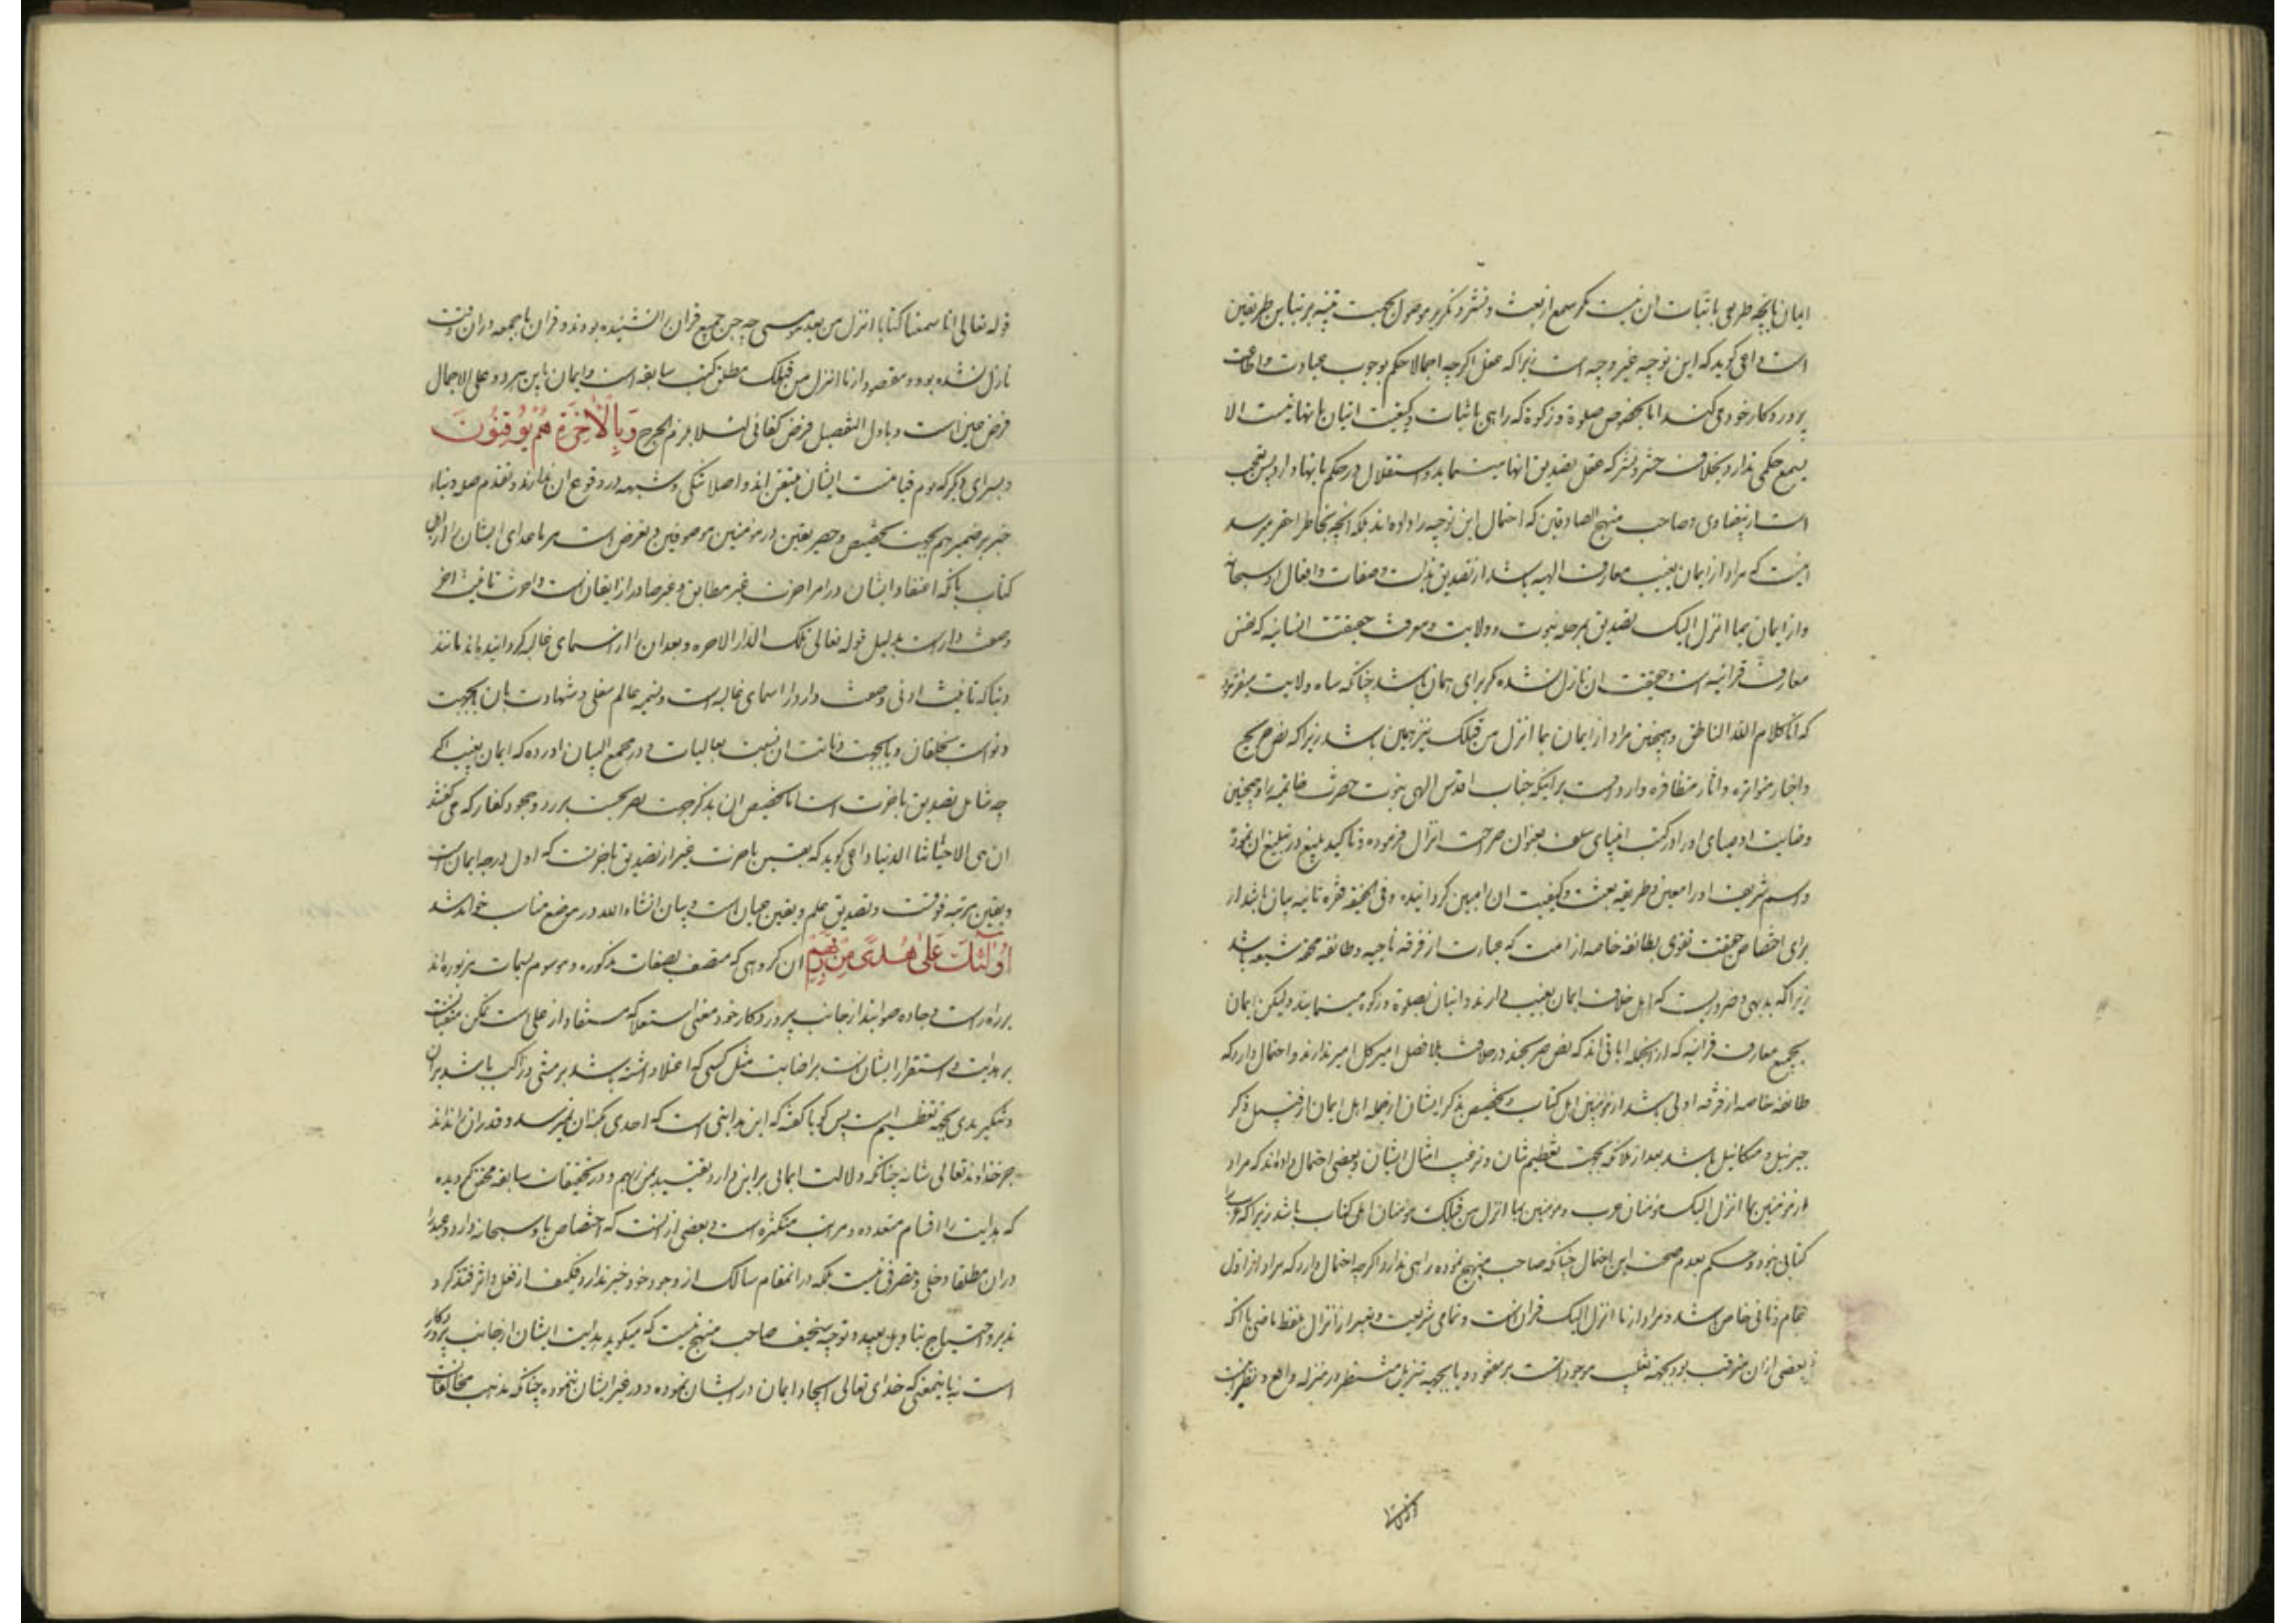 ایمان بآنچه طرعی باثبات ان نیست مکر سمع از بعث و نشر و تکریر موصول بجهت تنبیه بر تباین طریقین
است داعی کوید که این توجیه غیر وجیه است زیرا که عقل اکرچه اجمالا حکم بوجوب عبادت و اطاعت
پروردکار خود می کند اما بخصوص صلوة و زکوة که راهی باثبات و کیفیت اتیان بانها نیست الا
بسمع حکمی ندارد بخلاف حشر و نشر که عقل تصدیق انها مینماید و استقلال در حکم بانها دارد پس تعجب
است از بیضاوی و صاحب منهج الصادقین که احتمال این توجیه را داده اند بلکه انچه بخاطر احقر میرسد
اینست که مراد از ایمان بغیب معارف الهیه باشد از تصدیق بذات و صفات و افعال او سبحانه
و از ایمان بما انزل الیک تصدیق بمرحله نبوت و ولایت و معرفت حقیقت انسانیه که نفس
معارف قرانیه است و حقیقت ان نازل نشده مکر برای همان باشد چنانکه شاه ولایت میفرماید
که انا کلام الله الناطق و همچنین مراد از ایمان بما انزل من قبلک نیز همین باشد زیرا که نص صریح
و اخبار متواتره و اثار متظافره وارد است بر اینکه جناب اقدس الهی نبوت حضرت خاتمیه را و همچنین
وصایت اوصیای او را در کتب انبیای سلف بعنوان صراحت انزال فرموده و تاکید بلیغ در تبلیغ ان نموده
و اسم شریف او را معین و طریقه بعثت و کیفیت ان را مبین کردانیده و فی الحقیقه فقره ثانیه بیان باشد از
برای اختصاص حقیقت تقوی بطائفه خاصه از امت که عبارت از فرقه ناجیه و طائفه محقه شیعه باشد
زیرا که بدیهی و ضروریست که اهل خلاف ایمان بغیب دارند و اتیان بصلوة و زکوة مینمایند ولیکن ایمان
بجمیع معارف قرانیه که از انجمله ایاتی اند که نص صریحند در خلافت بلافصل امیر کل امیر ندارند و احتمال دارد که
طائفه خاصه از فرقه اولی باشد از مؤمنین اهل کتاب و تخصیص بذکر ایشان از جمله اهل ایمان از قبیل ذکر
جبرئیل و میکائیل باشد بعد از ملائکه بجهت تعظیم شان و ترغیب امثال ایشان و بعضی احتمال داده اند که مراد
از مؤمنین بما انزل الیک مؤمنان عرب و مؤمنین بما انزل من قبلک مؤمنان اهل کتاب باشد زیرا که عرب را
کتابی نبود و حکم بعدم صحت این احتمال چنانکه صاحب منهج نموده راهی ندارد اکرچه احتمال دارد که مراد از اول
عام و ثانی خاص باشد و مراد از ما انزل الیک قرانست و تمامی شریعت و تعبیر از انزال بلفظ ماضی با انکه
بعضی از ان مترقب بود بجهة تغلیب موجود است بر مفقود و یا بجهة تنزیل منتظر در منزله واقع و نظیر انست
قوله تعالی انا سمعنا کتابا انزل من بعد موسی چه جن جمیع قران را نشنیده بودند و قران باجمعه در ان وقت
نازل نشده بود و مقصود از ما انزل من قبلک مطلق کتب سابقه است و ایمان باین هر دو علی الاجمال
فرض عین است و باول التفصیل فرض کفائی لئلا یلزم الحرج وَبِالْاٰخِرَةِ هُمْ یُوقِنُونَ
و بسرای دیکر که یوم قیامت ایشان متیقن اند و اصلا شکی و شبهه در وقوع ان ندارند و تقدیم صله و بناء
خبر بر ضمیر هم بجهت تخصیص و حصر یقین در مؤمنین موصوفین و تعرض است بر ماعدای ایشان از اهل
کتاب بانکه اعتقاد ایشان در امر اخرت غیر مطابق و غیر صادر از ایقان است و اخرت تانیث اخر
وصفت دار است بدلیل قوله تعالی تلک الدار الاخرة و بعد ان را از اسمای غالبه کردانیده اند مانند
دنیا که تانیث ادنی وصفت دار و از اسمای غالبه است و تسمیه عالم سفلی و شهادت بان بجهت
دنو است بخلقان و یا بجهت دنائت ان نسبت بعالیات و در مجمع البیان اورده که ایمان بغیب اکر
چه شامل تصدیق باخرت است اما تخصیص ان بذکر جهت تصریحست بر رد و جحود کفار که می کفتند
ان هی الا حیاتنا الدنیا داعی کوید که یقین باخرت غیر از تصدیق باخرتست که اول درجه ایمان است
و یقین مرتبه فوقست و تصدیق علم و یقین عیان است و بیان انشاءالله در موضع مناسب خواهد شد
اُولٰٓئِکَ عَلیٰ هُدًی مِنْ رَبِّهِمْ ان کروهی که متصف بصفات مذکوره و موسوم بسمات مزبوره اند
بر راه راست و جاده صوابند از جانب پروردکار خود و معنی استعلا که مستفاد از علی است تمکن متقیانست
بر هدایت و استقرار ایشانست بر اضابت مثل کسی که اعتلا داشته باشد بر مشی و راکب باشد بر ان
و تنکیر هدی بجهة تعظیم است پس کویا کفته که این هدایتی است که احدی بکنه ان نمیرسد و قدر ان را نداند
جز خداوند تعالی شانه چنانکه دلالت ایمانی بر این دارد تقیید بمن ربهم و در تحقیقات سابقه محقق کردیده
که هدایت را اقسام متعدده و مراتب متکثره است و بعضی از انست که اختصاص باو سبحانه دارد و عبد را
در ان مطلقا دخلی و تصرفی نیست بلکه در انمقام سالک از وجود خود خبر ندارد فکیف از فعل و اثر فتذکر و
تدبر و احتیاج بتاویل بعید و توجیه سخیف صاحب منهج نیست که میکوید هدایت ایشان از جانب پروردکار
است نه باینمعنی که خدای تعالی ایجاد ایمان در ایشان نموده و در غیر ایشان ننموده چنانکه مذهب مخالفانست